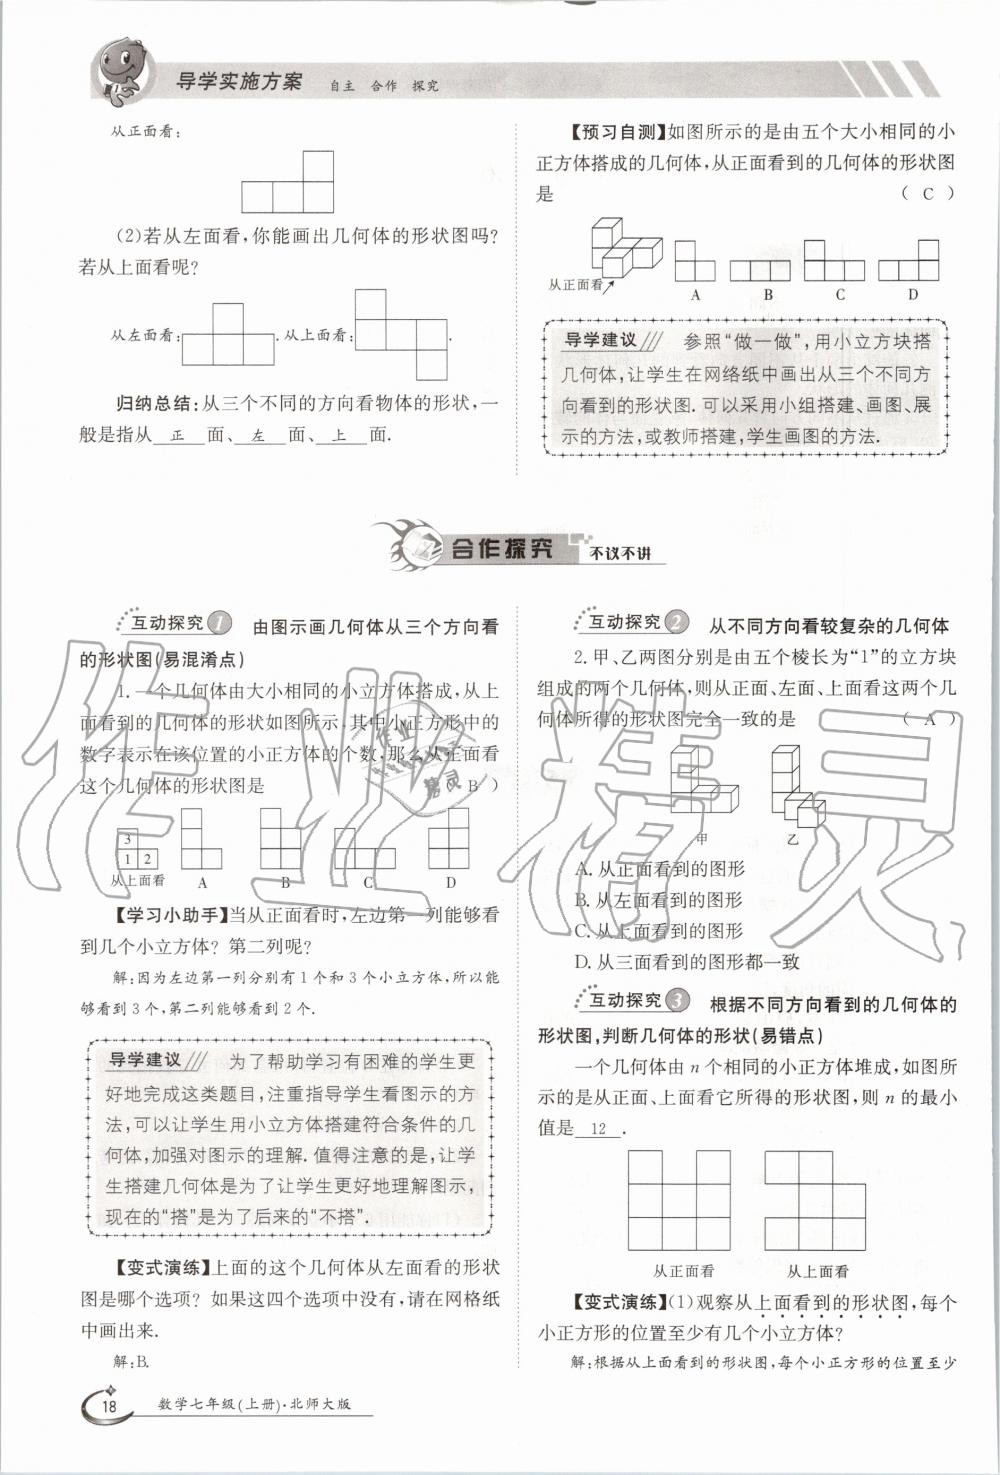 导学实施方案 自主 合作 探究
从正面看:
(2)若从左面看,你能画出几何体的形状图吗?
若从上面看呢?
从左面看: .从上面看: .
归纳总结:从三个不同的方向看物体的形状,一
般是指从 正 面、 左 面、 上 面.
【预习自测】如图所示的是由五个大小相同的小
正方体搭成的几何体,从正面看到的几何体的形状图
是 ( C )
从正面看
A B C D
导学建议 参照“做一做”,用小立方块搭
几何体,让学生在网络纸中画出从三个不同方
向看到的形状图. 可以采用小组搭建、画图、展
示的方法,或教师搭建,学生画图的方法.
合作探究 不议不讲
互动探究 1 由图示画几何体从三个方向看
的形状图(易混淆点)
1. 一个几何体由大小相同的小立方体搭成,从上
面看到的几何体的形状如图所示. 其中小正方形中的
数字表示在该位置的小正方体的个数,那么从正面看
这个几何体的形状图是 ( B )
3
1 2
从上面看 A B C D
【学习小助手】当从正面看时,左边第一列能够看
到几个小立方体? 第二列呢?
解:因为左边第一列分别有1个和3个小立方体,所以能
够看到3个,第二列能够看到2个.
导学建议 为了帮助学习有困难的学生更
好地完成这类题目,注重指导学生看图示的方
法,可以让学生用小立方体搭建符合条件的几
何体,加强对图示的理解. 值得注意的是,让学
生搭建几何体是为了让学生更好地理解图示,
现在的“搭”是为了后来的“不搭”.
【变式演练】上面的这个几何体从左面看的形状
图是哪个选项? 如果这四个选项中没有,请在网格纸
中画出来.
解:B.
互动探究 2 从不同方向看较复杂的几何体
2. 甲、乙两图分别是由五个棱长为“1”的立方块
组成的两个几何体,则从正面、左面、上面看这两个几
何体所得的形状图完全一致的是 ( A )
甲 乙
A. 从正面看到的图形
B. 从左面看到的图形
C. 从上面看到的图形
D. 从三面看到的图形都一致
互动探究 3 根据不同方向看到的几何体的
形状图,判断几何体的形状(易错点)
一个几何体由 n 个相同的小正方体堆成,如图所
示的是从正面、上面看它所得的形状图,则 n 的最小
值是 12 .
从正面看 从上面看
【变式演练】(1)观察从上面看到的形状图,每个
小正方形的位置至少有几个小立方体?
解:根据从上面看到的形状图,每个小正方形的位置至少
18 数学七年级(上册)·北师大版
作业精灵